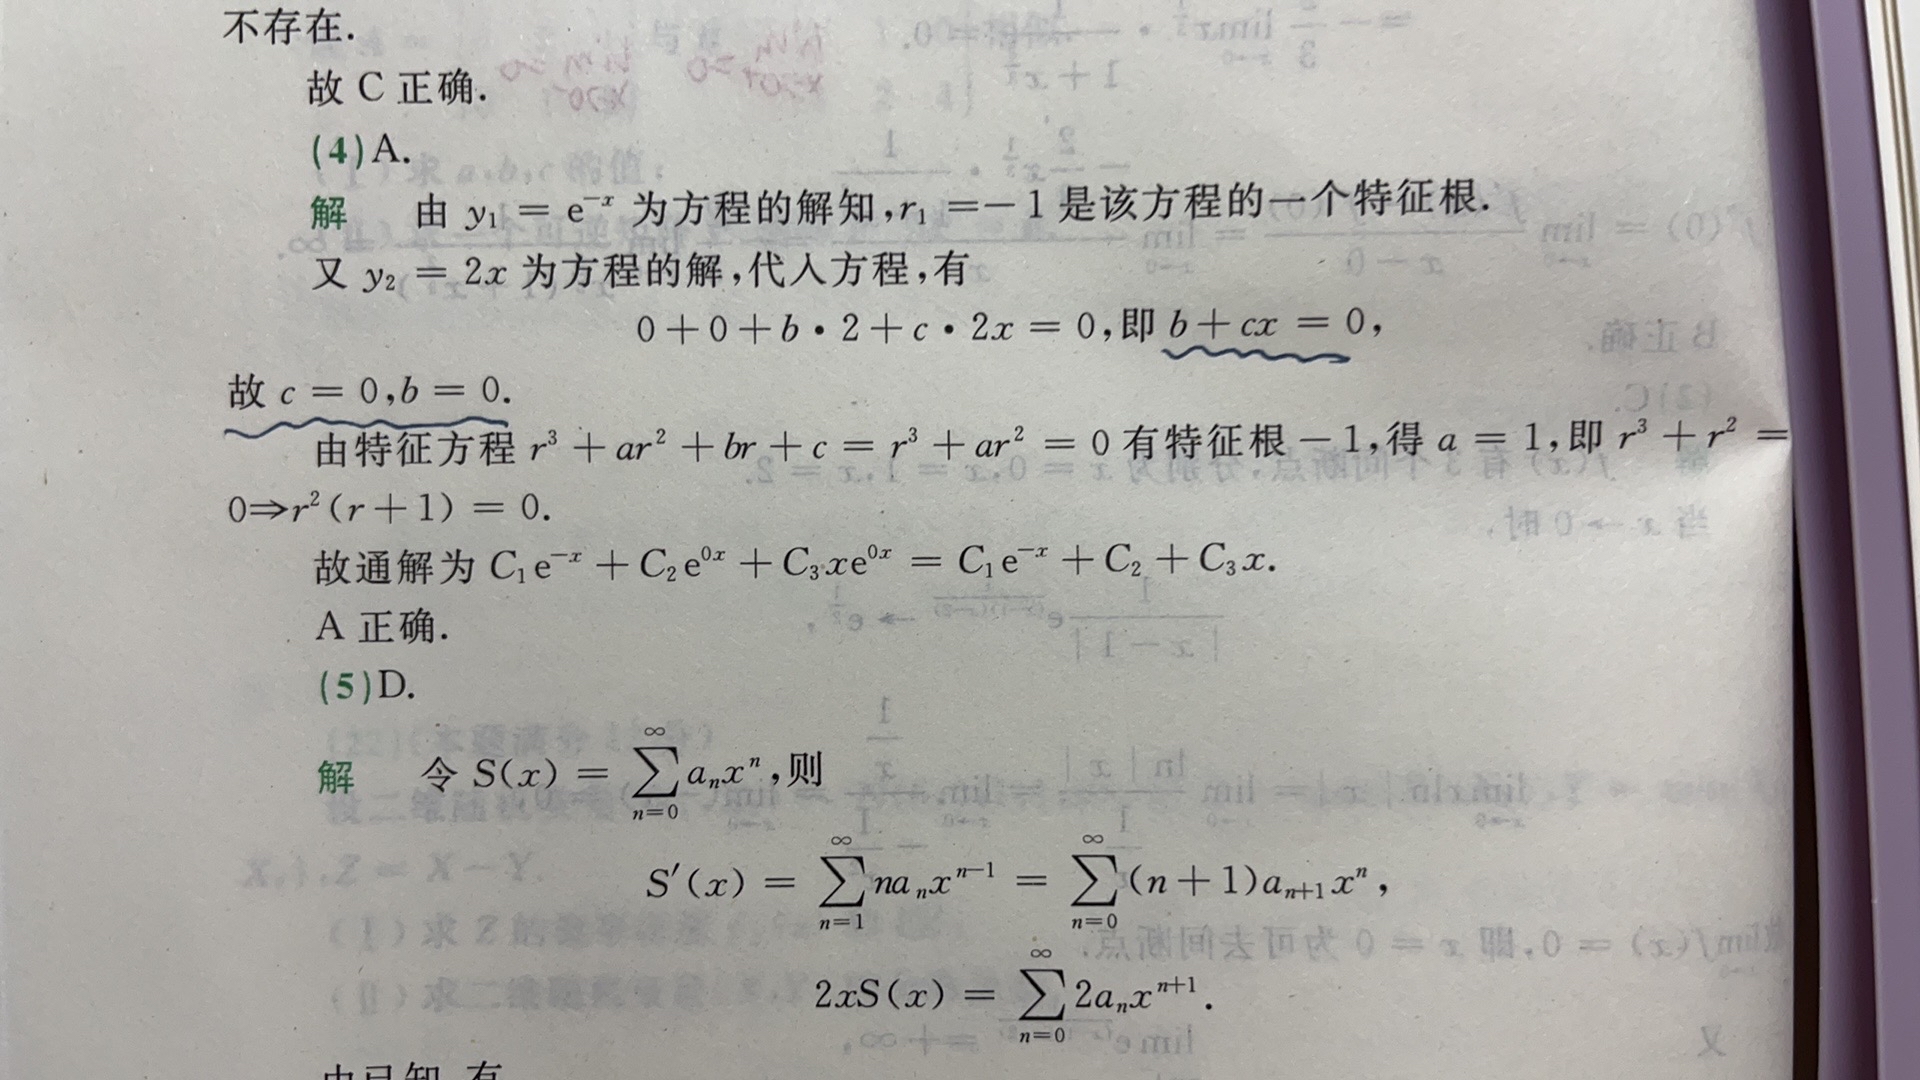 不存在.
故 C 正确.
(4)A.
解 由 y₁ = e⁻ˣ 为方程的解知,r₁ =－1 是该方程的一个特征根.
又 y₂ = 2x 为方程的解,代入方程,有
0+0+b·2+c·2x = 0,即 b+cx = 0,
故 c = 0,b = 0.
由特征方程 r³ + ar² + br + c = r³ + ar² = 0 有特征根－1,得 a = 1,即 r³ + r² =
0⇒r²(r+1) = 0.
故通解为 C₁e⁻ˣ + C₂e⁰ˣ + C₃xe⁰ˣ = C₁e⁻ˣ + C₂ + C₃x.
A 正确.
(5)D.
解 令 S(x) = ∑_{n=0}^{∞} aₙxⁿ,则
S′(x) = ∑_{n=1}^{∞} naₙxⁿ⁻¹ = ∑_{n=0}^{∞} (n+1)aₙ₊₁xⁿ,
2xS(x) = ∑_{n=0}^{∞} 2aₙxⁿ⁺¹.
由已知,有